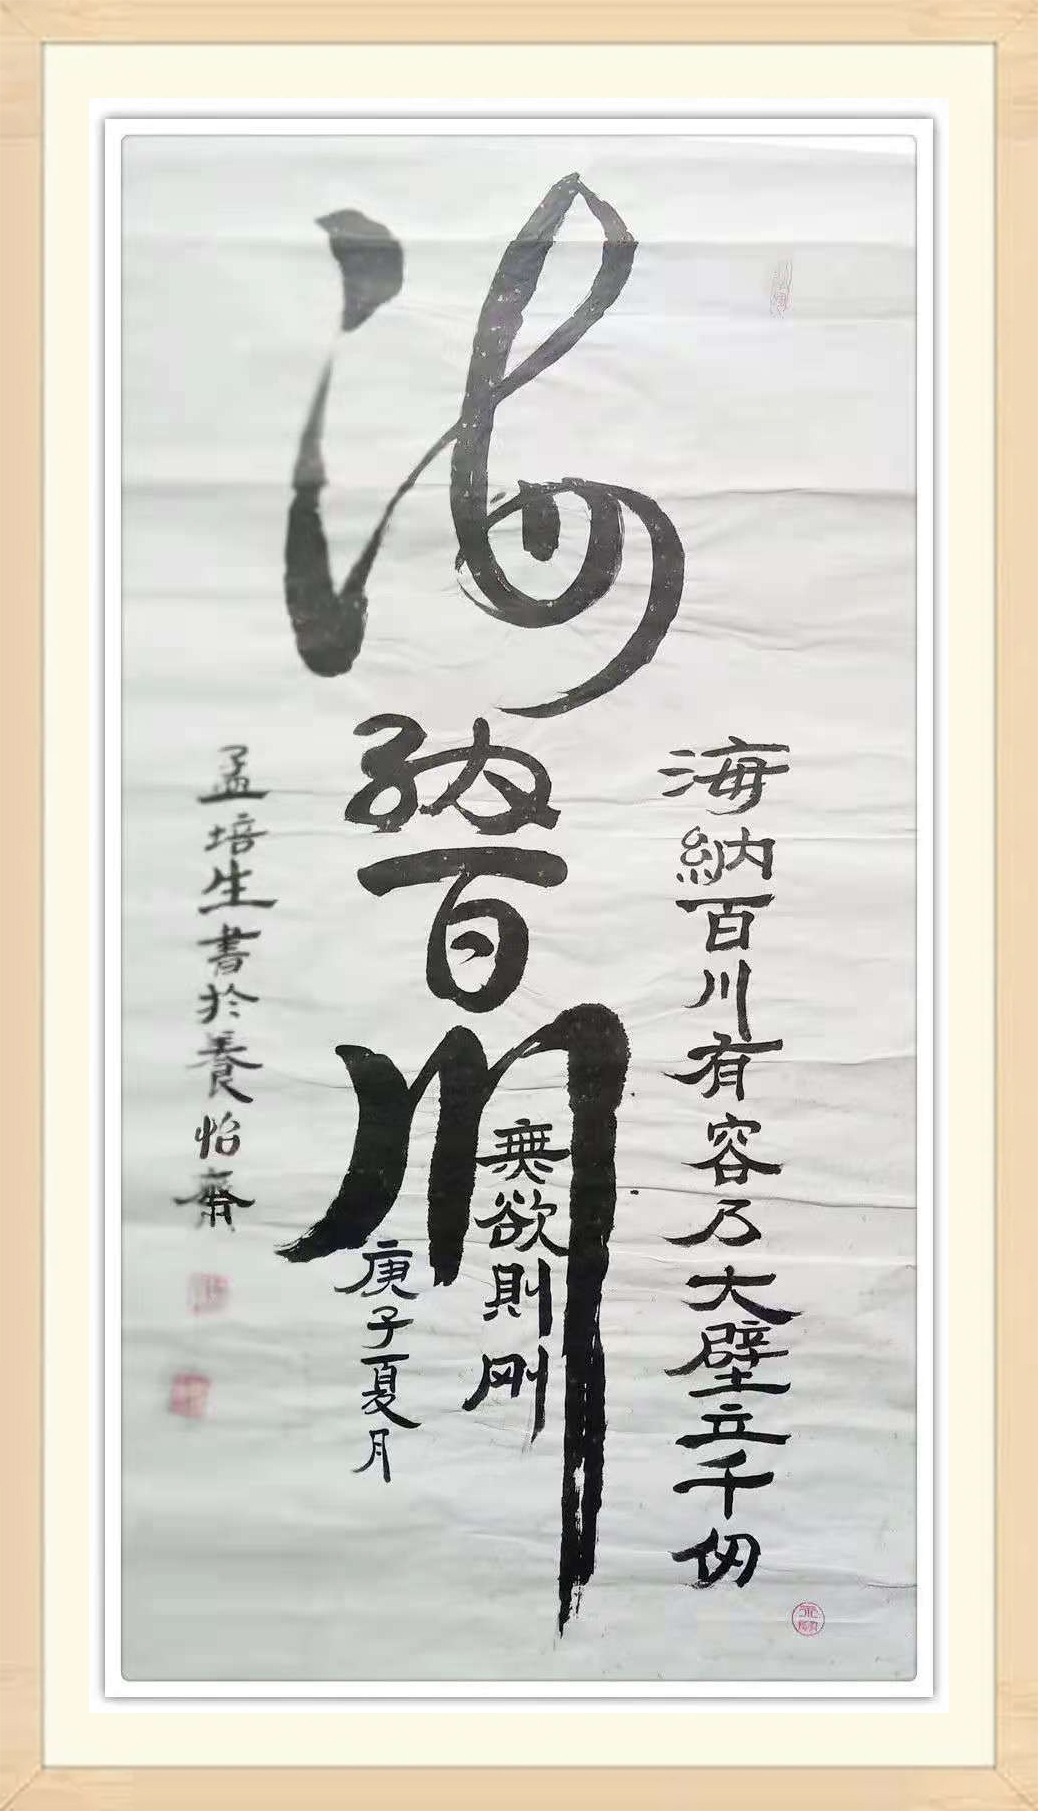 海納百川
海納百川有容乃大壁立千仞
無欲則剛
庚子夏月
孟培生書於養怡齋